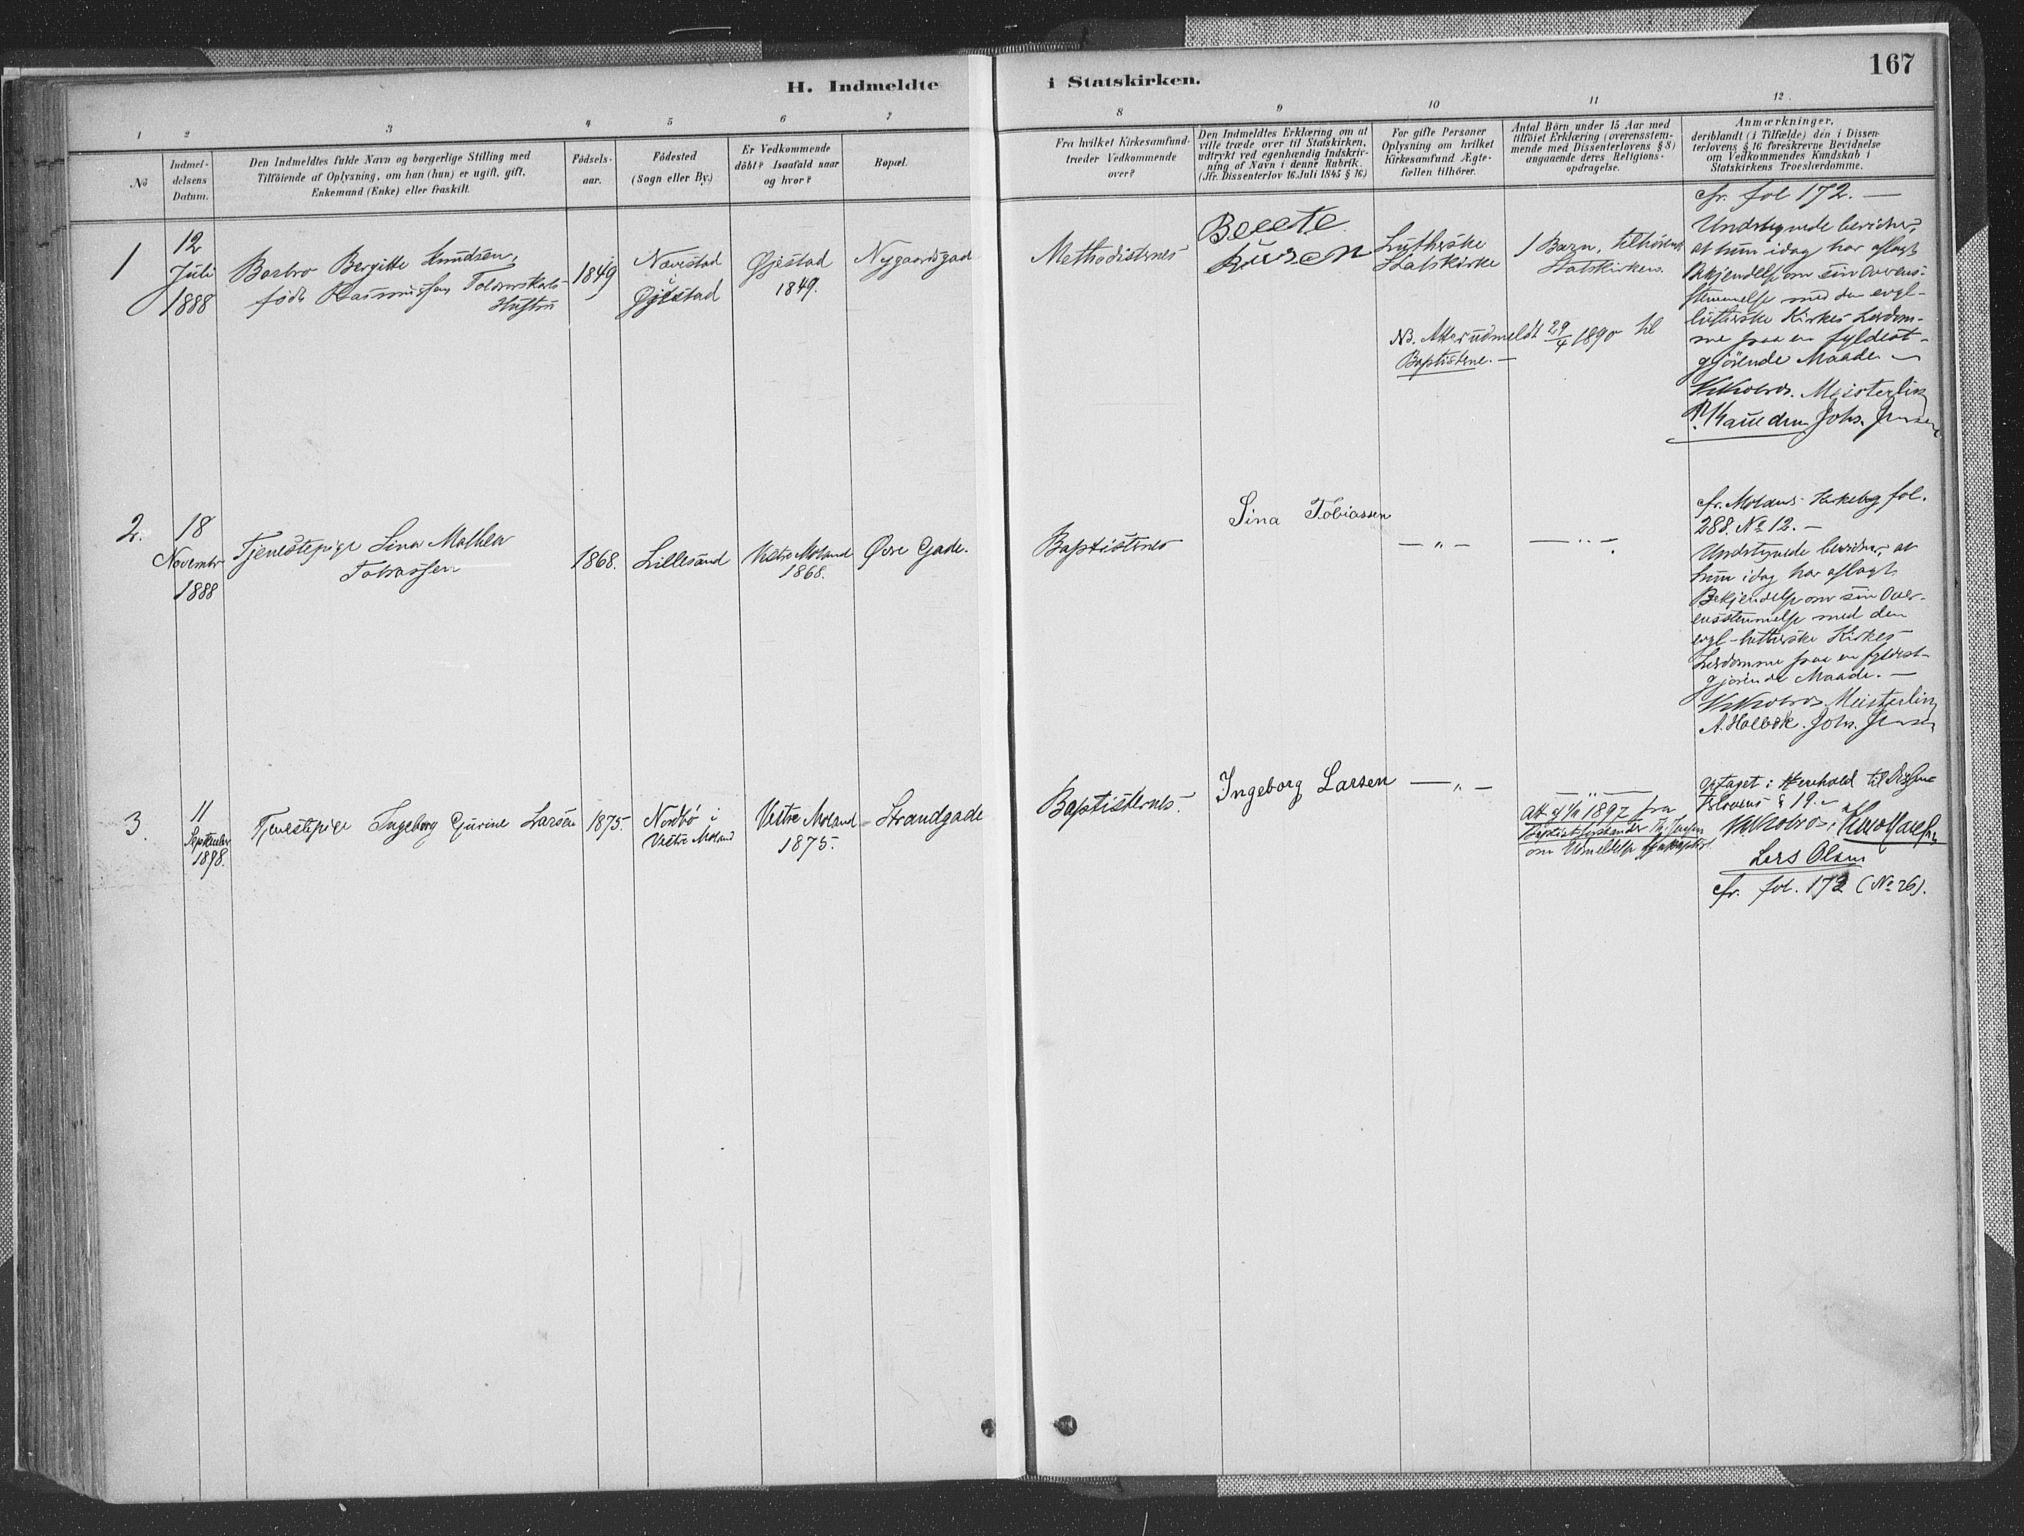 167
H. Indmeldte i Statskirken.
1 2 3 4 5 6 7 8 9 10 11 12.
No
Indmel-
delsens
Datum.
Den Indmeldtes fulde Navn og borgerlige Stilling med
Tilföiende af Oplysning, om han (hun) er ugift, gift,
Enkemand (Enke) eller fraskilt.
Födsels-
aar.
Födested
(Sogn eller By.)
Er Vedkommende
döbt? Isaafald naar
og hvor?
Bopæl.
Fra hvilket Kirkesamfund
træder Vedkommende
over?
Den Indmeldtes Erklæring om at
ville træde over til Statskirken,
udtrykt ved egenhændig Indskriv-
ning af Navn i denne Rubrik.
(Jfr. Dissenterlov 16. Juli 1845 § 16.)
For gifte Personer
Oplysning om hvilket
Kirkesamfund Ægte-
fællen tilhörer.
Antal Börn under 15 Aar med
tilföiet Erklæring (overensstem-
mende med Dissenterlovens § 8)
angaaende deres Religions-
opdragelse.
Anmærkninger,
deriblandt (i Tilfælde) den i Dissen-
terlovens § 16 foreskrevne Bevidnelse
om Vedkommendes Kundskab i
Statskirkens Troeslærdomme.
1
12
Juli
1888
Barbro Bergitte Knudsen,
født Rasmussen
Hustru
1849
Nævestad
i
Øjestad
Øjestad
1849.
Nygaardsgad
Methodisternes
Lutherske
Statskirke
1 Barn, tilhørende
Statskirken.
NB. Atter udmeldt 29/4 1890 til
Baptisterne. —
cfr. fol 172. —
Undertegnede bevidner,
at hun idag har aflagt
Bekjendelse om sin Overens-
stemmelse med den evgl-
lutherske Kirkes Lærdom-
me paa en fyldest-
gjørende Maade —
Meisterlin
Johs. Jensen
2.
18
November
1888
Tjenestepige Sina Mathea
Tobiassen
1868.
Lillesand
Vestre Moland
1868.
Øvre Gade.
Baptisternes
Sina Tobiassen
— " —
— " —
cfr. Molands Kirkebog fol.
288. No 12. —
Undertegnede bevidner, at
hun idag har aflagt
Bekjendelse om sin Over-
ensstemmelse med den
evgl-lutherske Kirkes
Lærdomme paa en fyldest-
gjørende Maade. —
Meisterlin
A. Holbæk. Johs. Jensen
3.
11
September
1898.
Tjenestepige Ingeborg Gurine Larsen
1875.
Nordbø i
Vestre Moland
Vestre Moland
1875.
Strandgade
Baptisternes.
Ingeborg Larsen
— " —
— " —
1897 fra
om Udmeldelse
Optaget i Henhold til Dissen-
terlovens § 19. —
Lars Olsen
cfr. fol. 172 (No 26).